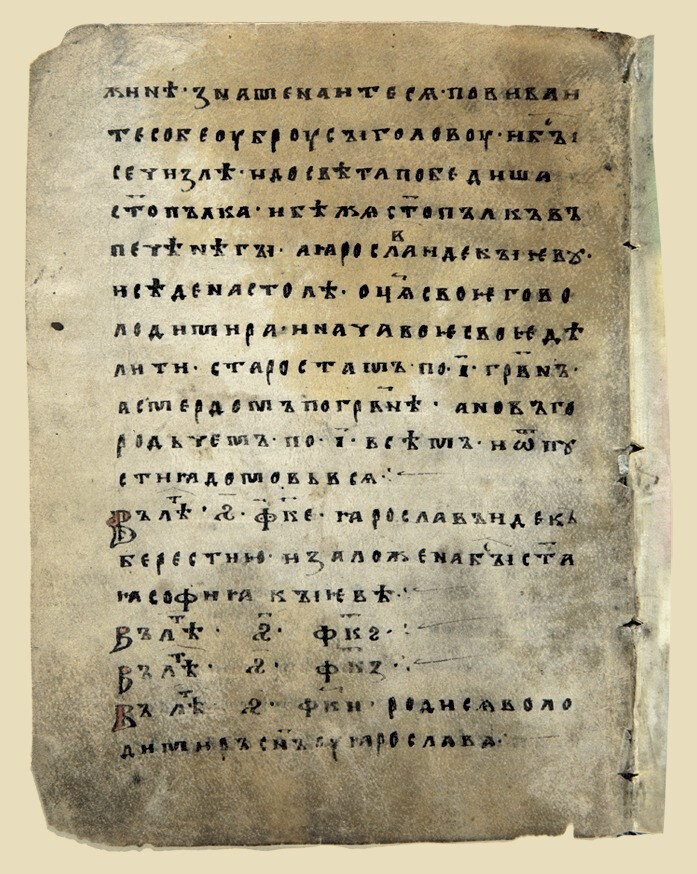 жинѣ · знаменаитеся · повиваи
тесобеоуброусъіголовоу · ибъі
сеуизлѣ · идосвѣтапобедиша
ст҃опълка · ибѣжяст҃опълкъвъ
пеуѣнѣгъі · аıарославидекъııевꙋ ·
исѣденастолѣ · оц҃ясвоѥгово
лодимира · инауавоѥсвоꙗдѣ
лити · старостамъ · по · і҃ · грв҃нъ ·
асмердомъпогрв҃нѣ · ановъго
родьуемъ · по · і҃ · всѣмъ · иѿпꙋ
стиꙗдомовьвся ⁘
Вълѣт · ҂ѕ҃ · фк҃е · ꙗрославъидекъ
берестию · изаложенабъіст҃а
ꙗсофиꙗкъıевѣ ⁘
Вълѣт · ҂ѕ҃ · фк҃ѕ ⁘
Вълѣт · ҂ѕ҃ · фк҃з ⁘
Вълѣт · ҂ѕ҃ · фк҃и · родисяволо
димиръсн҃ъуꙗрослава ⁘